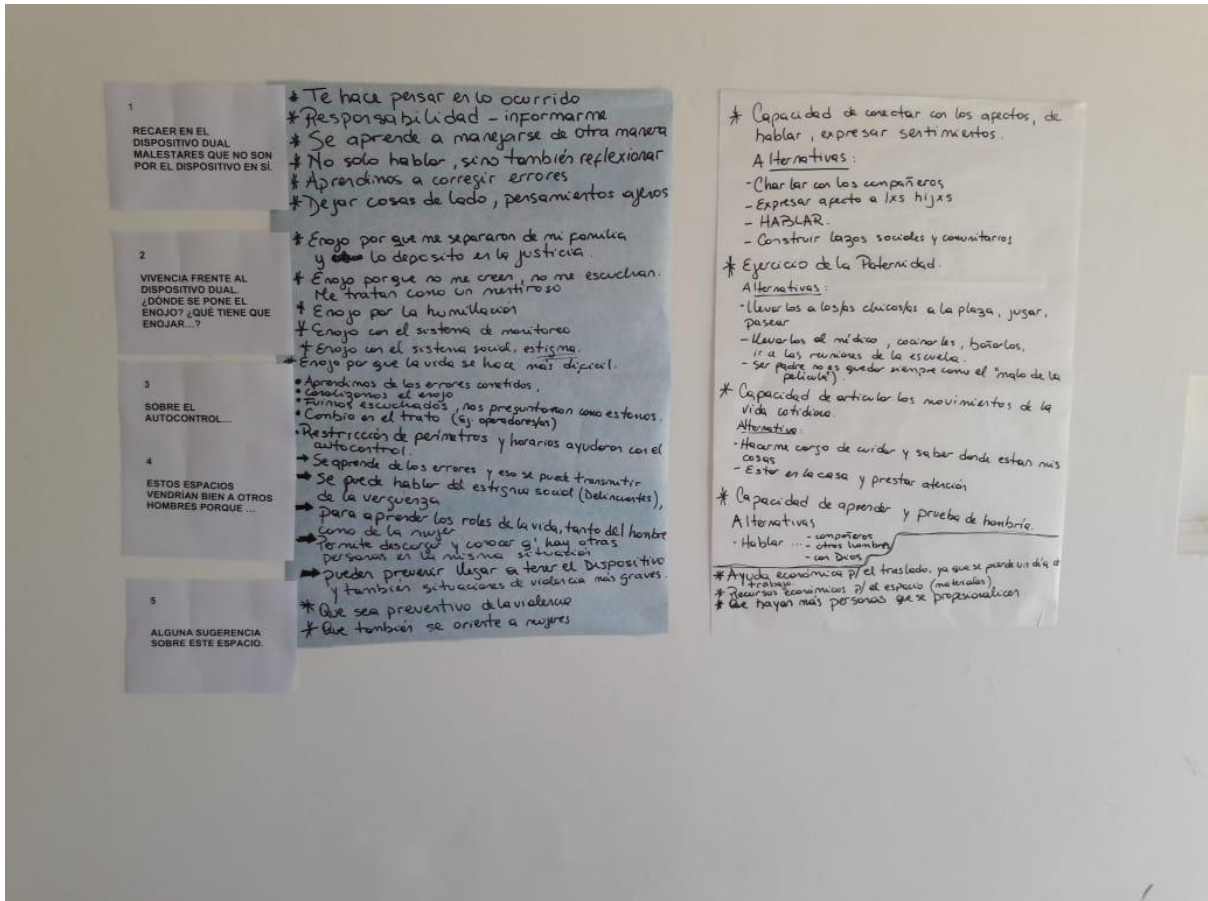 1
RECAER EN EL
DISPOSITIVO DUAL
MALESTARES QUE NO SON
POR EL DISPOSITIVO EN SÍ.
* Te hace pensar en lo ocurrido
* Responsabilidad - informarme
* Se aprende a manejarse de otra manera
* No solo hablar, sino también reflexionar
* Aprendimos a corregir errores
* Dejar cosas de lado, pensamientos ajenos
2
VIVENCIA FRENTE AL
DISPOSITIVO DUAL.
¿DÓNDE SE PONE EL
ENOJO? ¿QUÉ TIENE QUE
ENOJAR...?
* Enojo por que me separaron de mi familia
y lo deposito en la justicia.
* Enojo porque no me creen, no me escuchan.
Me tratan como un mentiroso
* Enojo por la humillación
* Enojo con el sistema de monitoreo
* Enojo con el sistema social, estigma.
* Enojo por que la vida se hace más difícil.
3
SOBRE EL
AUTOCONTROL...
• Aprendimos de los errores cometidos.
• Canalizamos el enojo
• Fuimos escuchados, nos preguntaron como estamos.
• Cambio en el trato (Ej. operadores/as)
• Restricción de perímetros y horarios ayudaron con el
autocontrol.
4
ESTOS ESPACIOS
VENDRÍAN BIEN A OTROS
HOMBRES PORQUE ...
→ Se aprende de los errores y eso se puede transmitir
→ Se puede hablar del estigma social (Delincuentes),
de la verguenza
→ para aprender los roles de la vida, tanto del hombre
como de la mujer
→ Permite descargar y conocer q' hay otras
personas en la misma situación
→ pueden prevenir llegar a tener el Dispositivo
y también situaciones de violencia más graves.
5
ALGUNA SUGERENCIA
SOBRE ESTE ESPACIO.
* Que sea preventivo de la violencia
* Que también se oriente a mujeres
* Capacidad de conectar con los afectos, de
hablar, expresar sentimientos.
Alternativas:
- Charlar con los compañeros
- Expresar afecto a lxs hijxs
- HABLAR.
- Construir lazos sociales y comunitarios
* Ejercicio de la Paternidad.
Alternativas:
- Llevarlos a los/as chicos/as a la plaza, jugar,
pasear
- Llevarlos al médico, cocinarles, bañarlos,
ir a las reuniones de la escuela.
- Ser padre no es quedar siempre como el "malo de la
película").
* Capacidad de articular los movimientos de la
vida cotidiana.
Alternativa:
- Hacerme cargo de cuidar y saber donde estan mis
cosas
- Estar en la casa y prestar atención
* Capacidad de aprender y prueba de hombría.
Alternativas
- Hablar ... - compañeros
- otros hombres
- con Dios
* Ayuda económica p/ el traslado, ya que se pierde un día de
trabajo
* Recursos económicos p/ el espacio (materiales)
* Que hayan más personas que se profesionalicen.